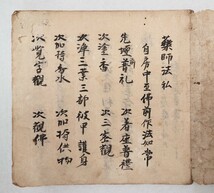 藥師法私
自房中至佛前作法如常
先壇前普礼 次著座普禮
次塗香 次三密觀
次淨三業三部被甲護身
次加持香水 次加持供物
次覽字觀 次觀佛